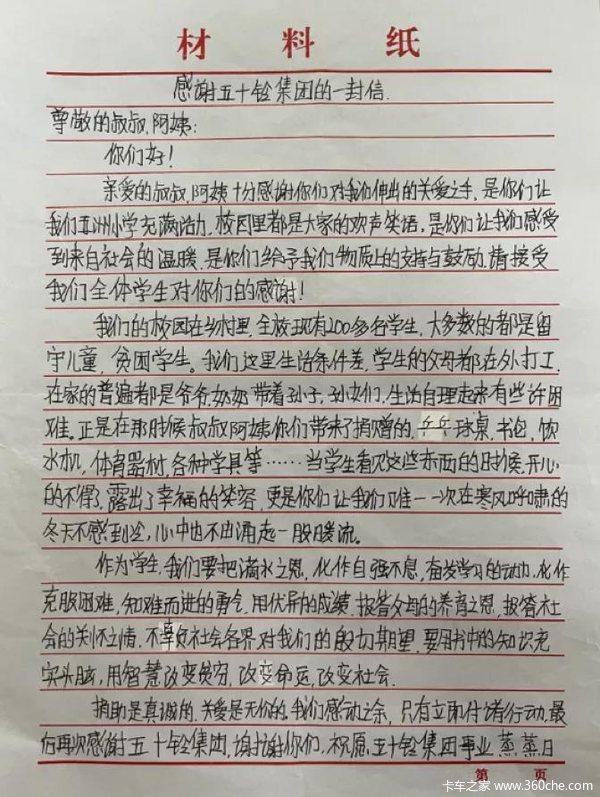 材料纸
感谢五十铃集团的一封信.
尊敬的叔叔,阿姨:
你们好!
亲爱的叔叔,阿姨十分感谢你们对我们伸出的关爱之手,是你们让
我们五洲小学充满活力.校园里都是大家的欢声笑语,是你们让我们感受
到来自社会的温暖.是你们给予我们物质上的支持与鼓励,请接受
我们全体学生对你们的感谢!
我们的校园在乡村里,全校现有200多名学生,大多数的都是留
守儿童,贫困学生。我们这里生活条件差,学生的父母都在外打工.
在家的普遍都是爷爷,奶奶带着孙子,孙女们.生活自理起来有些许困
难。正是在那时候叔叔阿姨你们带来了捐赠的,乒乓球桌,书包,饮
水机,体育器材,各种学具等……当学生看见这些东西的时候,开心
的不得了,露出了幸福的笑容,更是你们让我们唯一一次在寒风呼啸的
冬天不感到冷,心中也不由涌起一股暖流。
作为学生,我们要把滴水之恩,化作自强不息,奋发学习的动力,化作
克服困难,知难而进的勇气,用优异的成绩,报答父母的养育之恩,报答社
会的关怀之情.不辜负社会各界对我们的殷切期望,要用书中的知识充
实头脑,用智慧改变贫穷,改变命运,改变社会.
捐助是真诚的,关爱是无价的。我们感动之余,只有立即付诸行动.最
后再次感谢五十铃集团,谢谢你们.祝愿五十铃集团事业蒸蒸日
第 页
卡车之家 www.360che.com